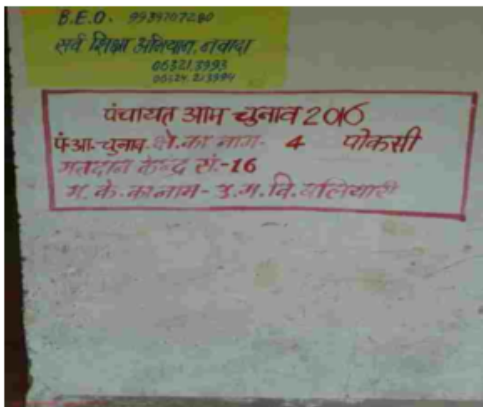 B.E.O. 9939707280
सर्व शिक्षा अभियान, नवादा
06324.213994
पंचायत आम चुनाव 2016
पं.आ.चुनाव. क्षे. का नाम- 4 पोकसी
मतदान केन्द्र सं.-16
म. के. का नाम- उ.म.वि.